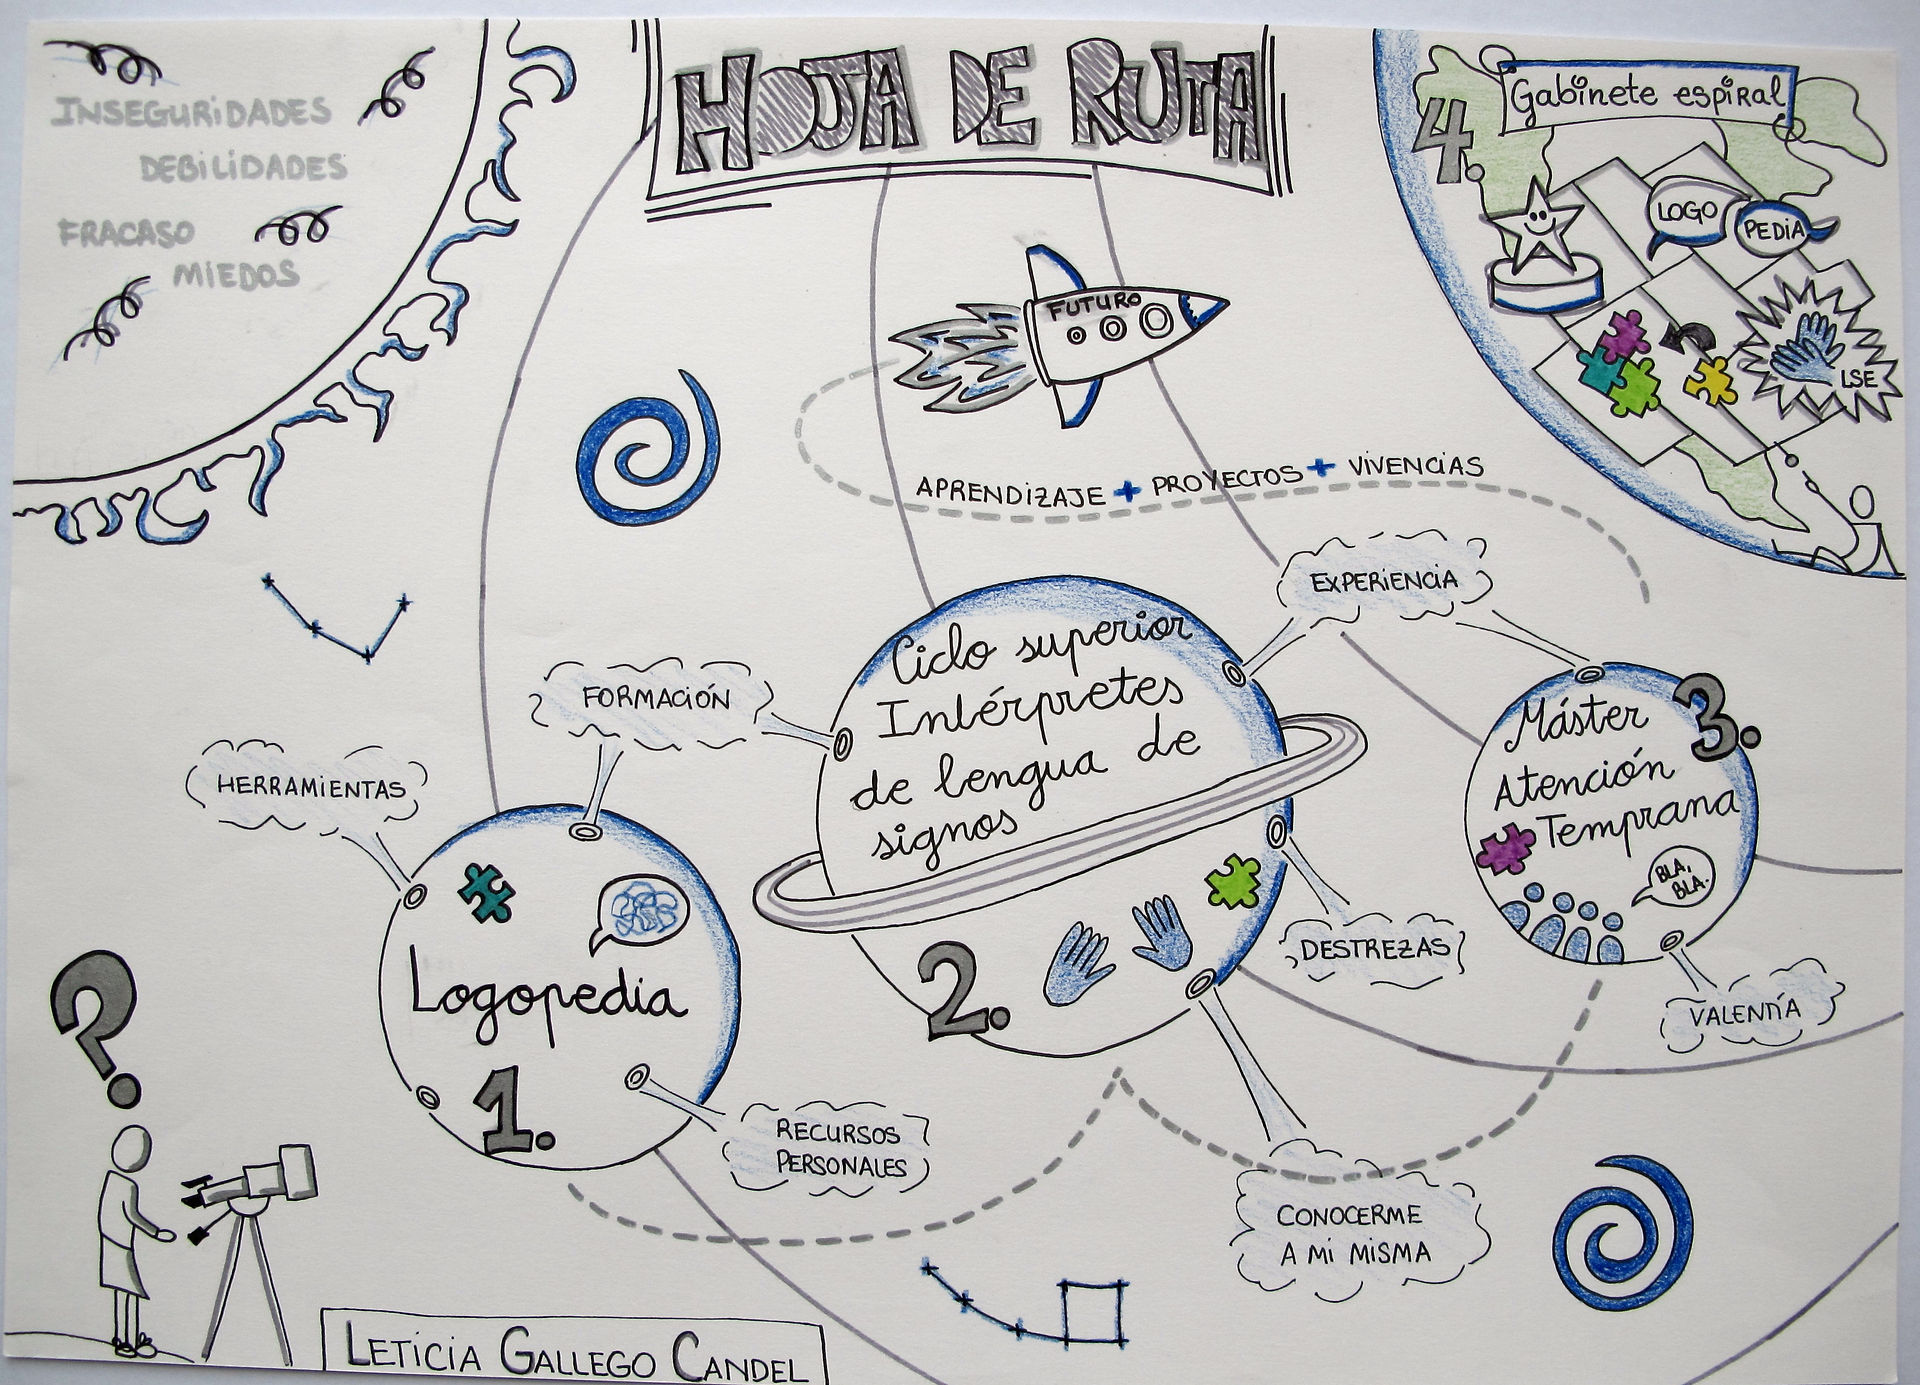 HOJA DE RUTA
INSEGURIDADES
DEBILIDADES
FRACASO
MIEDOS
4.
Gabinete espiral
LOGO
PEDIA
LSE
FUTURO
APRENDIZAJE + PROYECTOS + VIVENCIAS
EXPERIENCIA
FORMACIÓN
HERRAMIENTAS
Ciclo superior
Intérpretes
de lengua de
signos
2.
Máster
3.
Atención
Temprana
BLA,
BLA.
DESTREZAS
VALENTÍA
Logopedia
1.
RECURSOS
PERSONALES
CONOCERME
A MI MISMA
?
LETICIA GALLEGO CANDEL